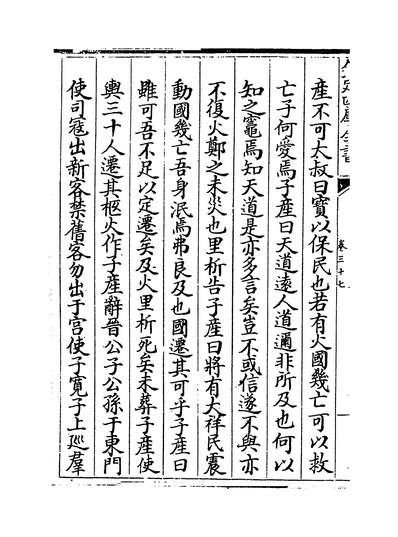 産不可太叔曰寳以保民也若有火國幾亡可以救
亡子何愛焉子産曰天道逺人道邇非所及也何以
知之竈焉知天道是亦多言矣豈不或信遂不與亦
不復火鄭之未災也里析告子産曰將有大祥民震
動國幾亡吾身泯焉弗良及也國遷其可乎子産曰
雖可吾不足以定遷矣及火里析死矣未葬子産使
輿三十人遷其柩火作子産辭晉公子公孫于東門
使司寇出新客禁舊客勿出于宫使子寛子上廵羣
卷三十七